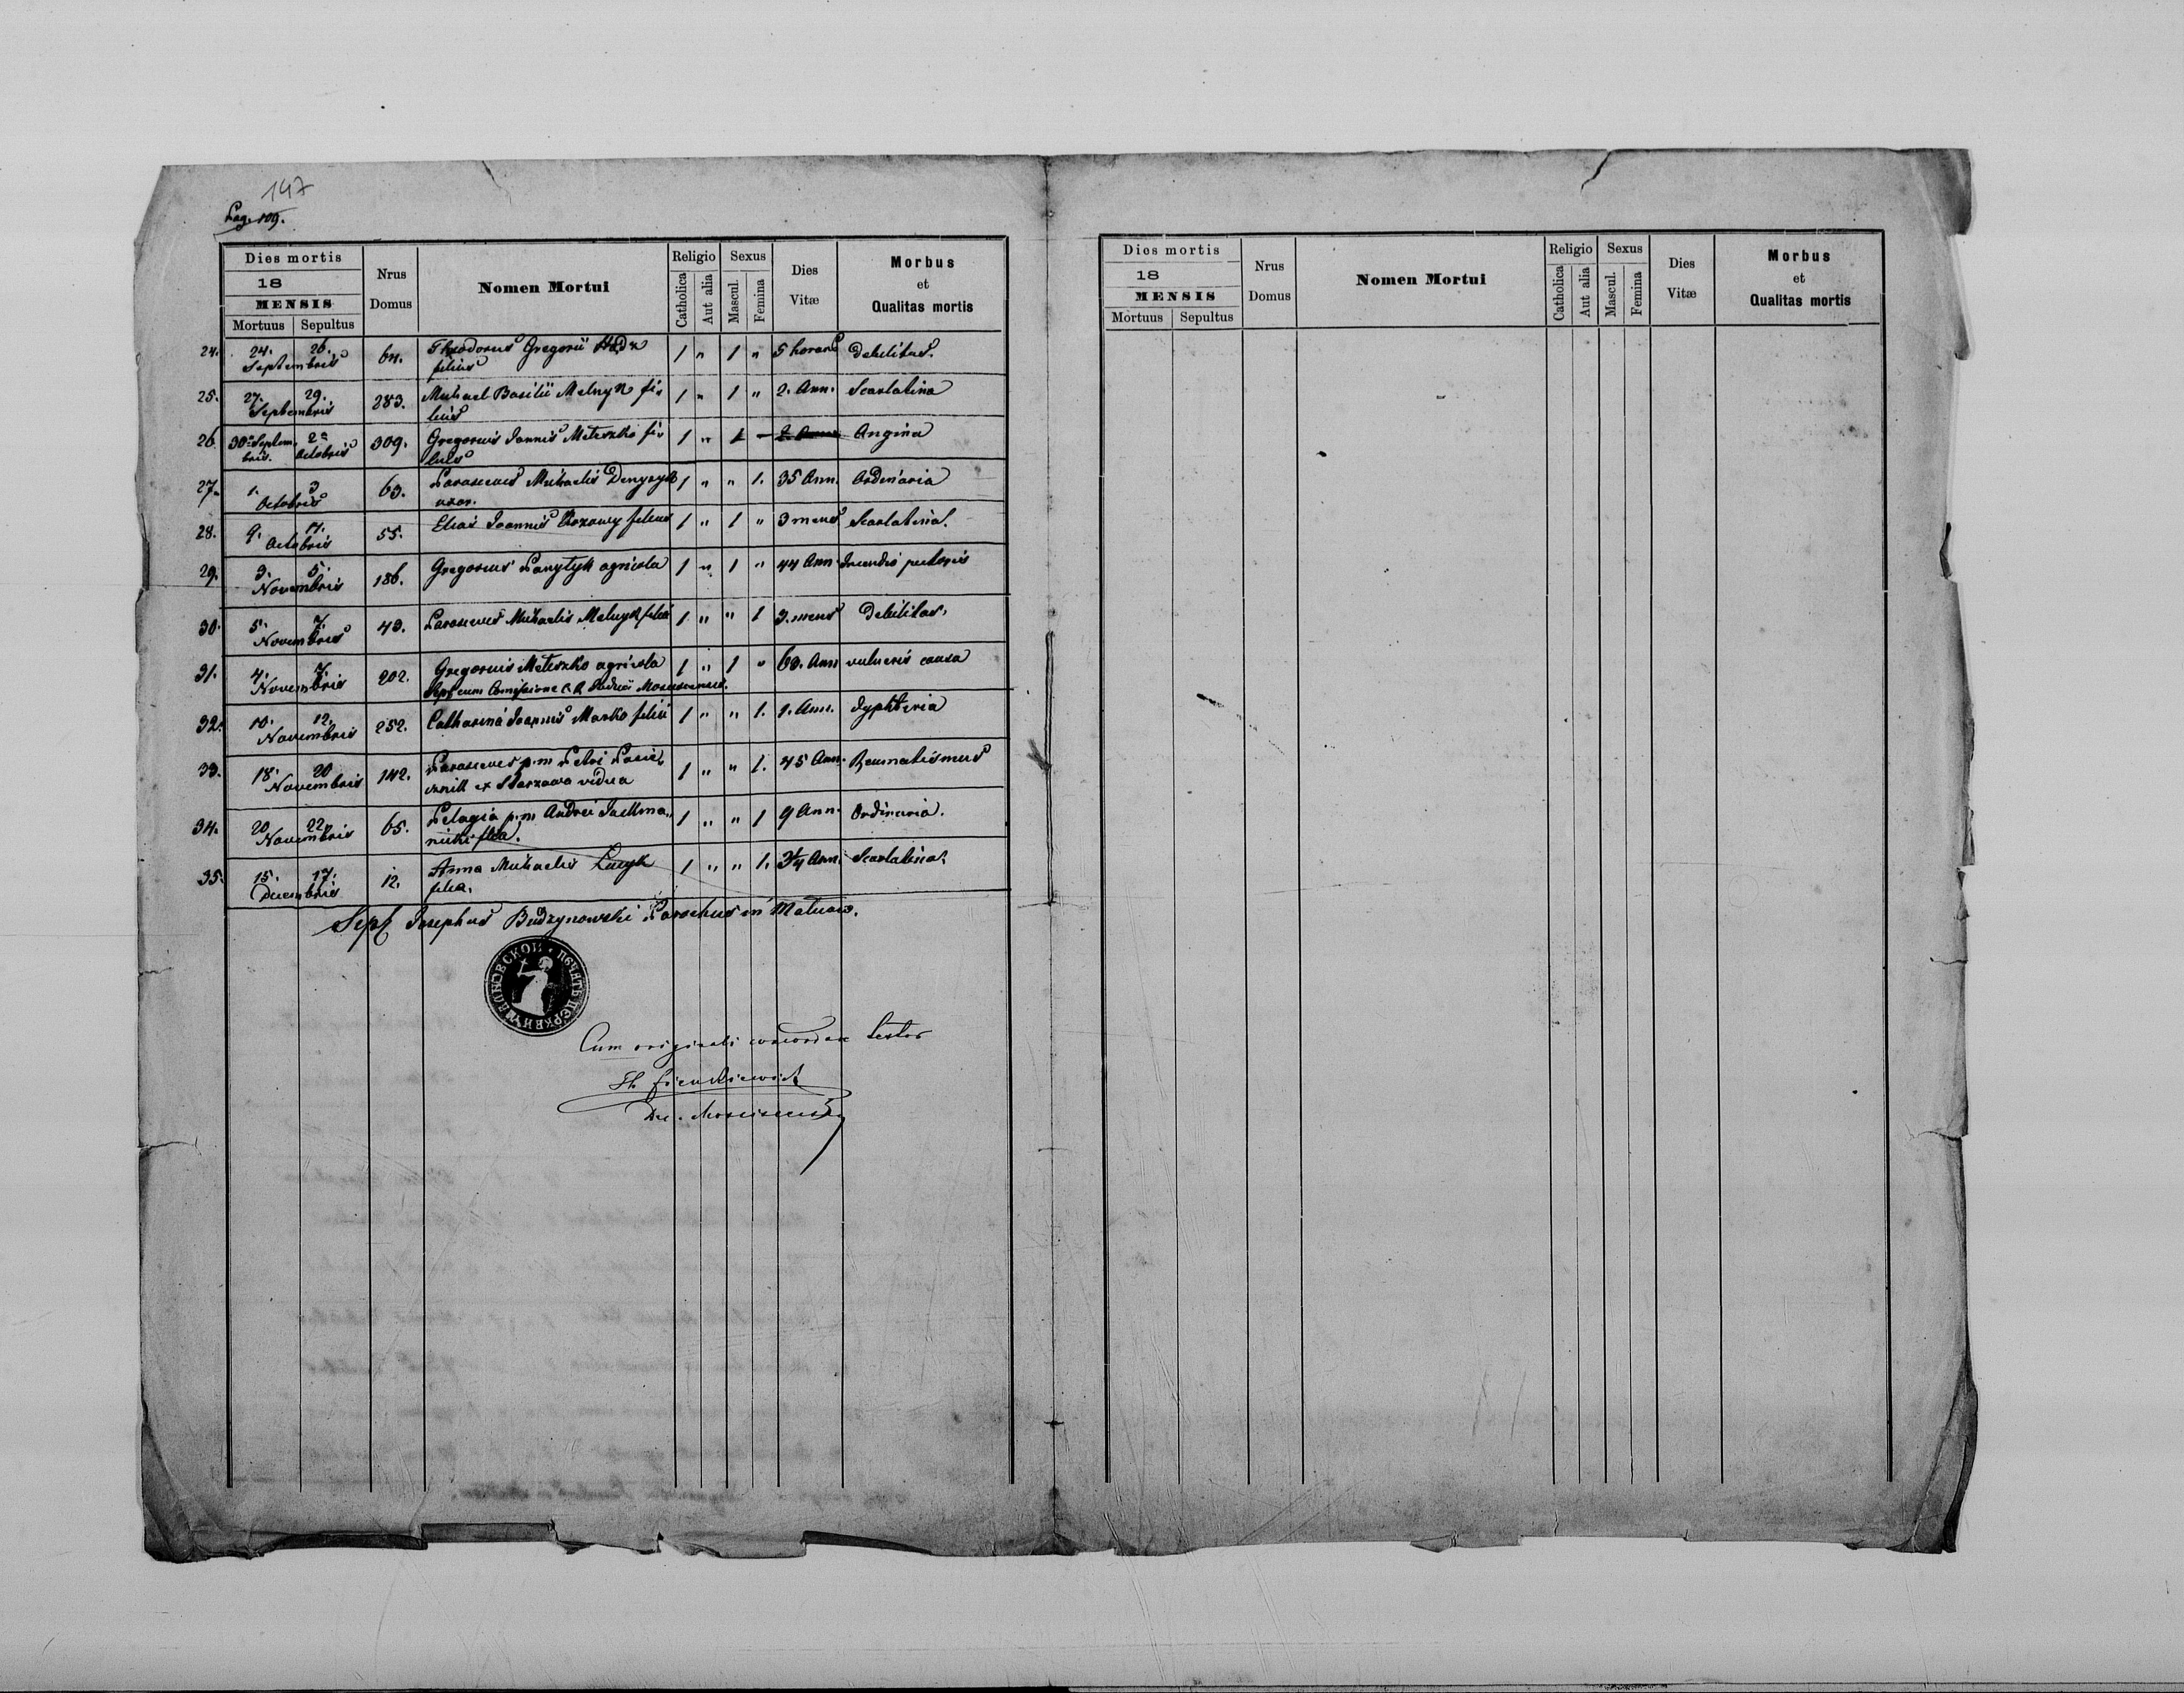 147
Pag. 109.
Dies mortis
18
MENSIS
Mortuus Sepultus
Nrus Domus
Nomen Mortui
Religio
Catholica
Aut alia
Sexus
Mascul.
Femina
Dies Vitæ
Morbus
et
Qualitas mortis
24. 24. 26. 64. Theodorus Gregorii 1 " 1 " 5 horar. Debilitas.
Septembris filius
25. 27. 29. 283. Michael Basilii Melnyk fi- 1 " 1 " 2. Ann. Scarlatina
Septembris lius
26 30a Septem- 2a 309. Gregorius Joannis Meteszko fi- 1 " 1 Angina
bris. Octobris lius
27. 1. 3 63. Parasceves Michaelis 1 " " 1. 35 Ann. Ordinaria
Octobris uxor.
28. 9. 11. 55. Elias Joannis filius 1 " 1 " 3 mens Scarlatina.
Octobris
29. 3. 5. 186. Gregorius Panytyk agricola 1 " 1 " 44 Ann. pectoris
Novembris
30. 5. 7. 43. Parasceves Michaelis Melnyk filia 1 " " 1 3. mens Debilitas.
Novembris
31. 4. 7. 202. Gregorius Meteszko agricola 1 " 1 " 60. Ann vulneris causa
Novembris cum Comissione
32. 10. 12. 252. Catharina Joannis Marko filia 1 " " 1. 1. Ann. dyphteria
Novembris
33. 18. 20 142. Parasceves p.m Petri 1 " " 1. 45 Ann. Reumatismus
Novembris ex Starzawa vidua
34. 20 22. 65. Pelagia p.m Andrei Jachma- 1 " " 1 9 Ann. Ordinaria.
Novembris nicki filia.
35. 15. 17. 12. Anna Michaelis Lucyk 1 " " 1. 3/4 Ann. Scarlatina.
Decembris filia.
Josephus Budzynowski Parochus in
ПЕЧАТЬ ЦЕРКВИ
Cum originali concordare testor
Dies mortis
18
MENSIS
Mortuus Sepultus
Nrus Domus
Nomen Mortui
Religio
Catholica
Aut alia
Sexus
Mascul.
Femina
Dies Vitæ
Morbus
et
Qualitas mortis